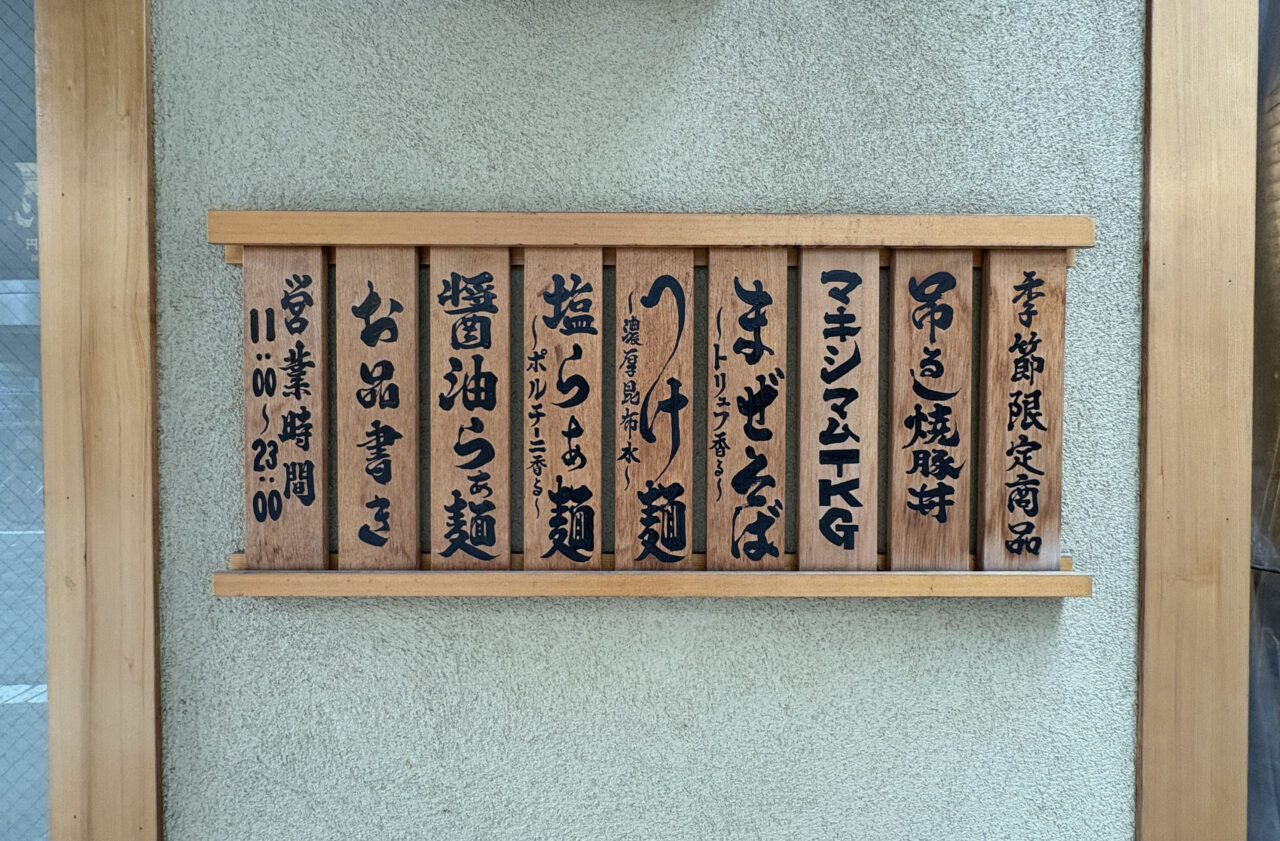 営業時間
11:00～23:00
お品書き
醤油らぁ麺
塩らぁ麺
～ポルチーニ香る～
つけ麺
～濃厚昆布水～
まぜそば
～トリュフ香る～
マキシマムTKG
吊るし焼豚丼
季節限定商品